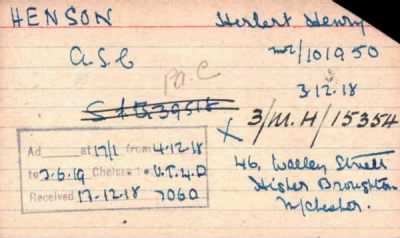 HENSON Herbert Henry
A.S.C M2/101950
Pa.C
3.12.18
3/M.H/15354
X
Ad at 17/1 from 4-12-18
to 3-6-19 Chelsea U.T.L.D
Received 17-12-18 7060
46, Walley Street
Higher Broughton
M/Chester.